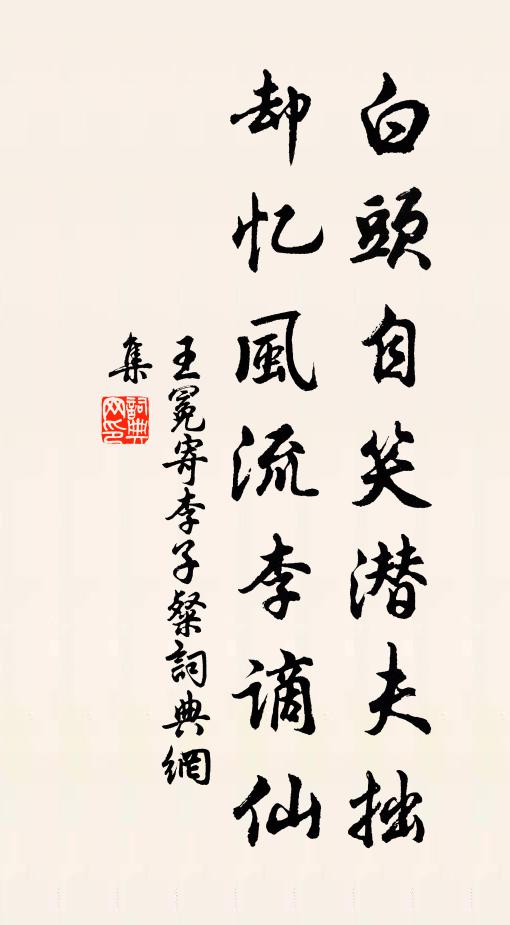 白頭自笑潜夫拙
却忆風流李谪仙
王冕寄李子粲詞典網
集
詞典
网印